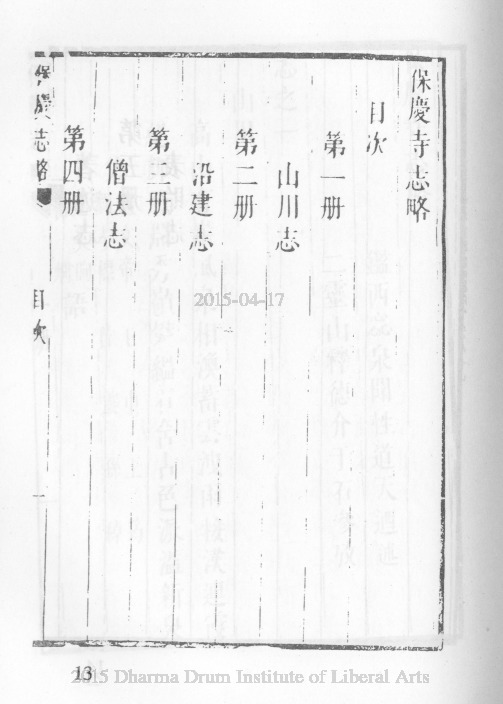 保慶寺志略
目次
第一册
山川志
第二册
沿建志
第三册
僧法志
第四册
保慶志略
目次
2015-04-17
13
2015 Dharma Drum Institute of Liberal Arts